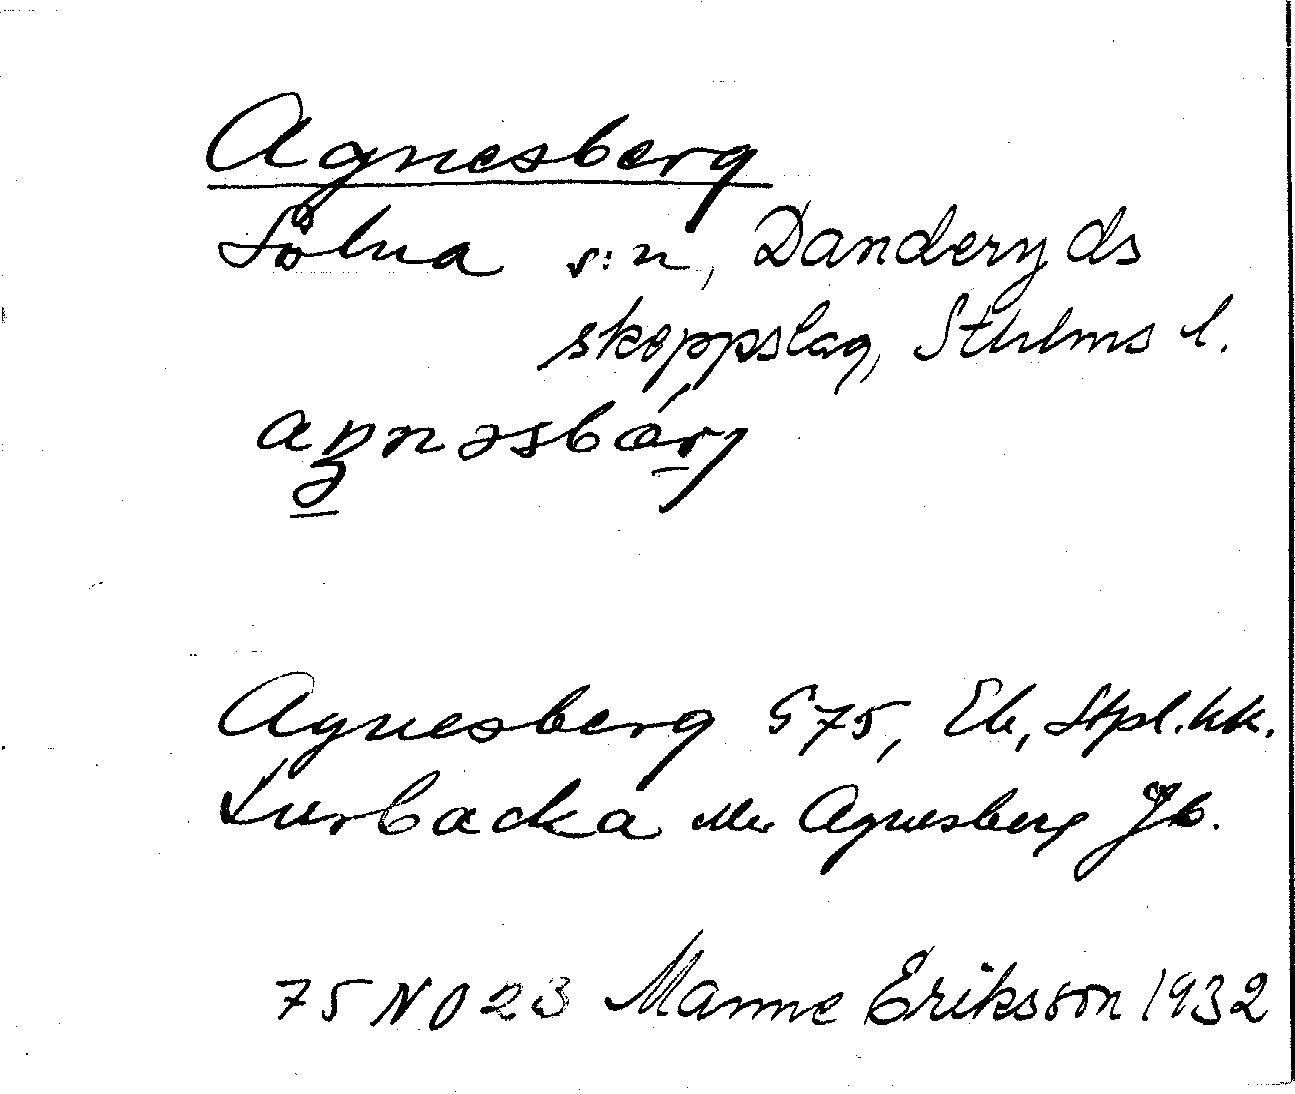 Agnesberg
Solna s:n, Danderyds
skeppslag, Sthlms l.
Agnesberg G75, Ek, Stpl.kk.
Lurbacka eller Agnesberg Jb.
75 NO 23 Manne Eriksson 1932